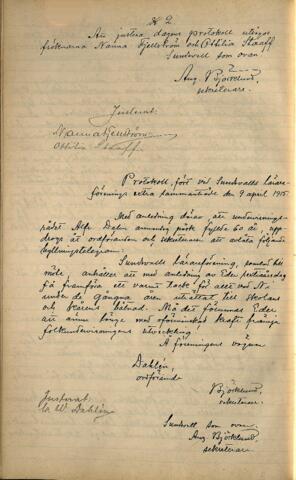 № 2
Att justera dagens protokoll utsågos
fröknarna Nanna Fjellström och Ottilia Staaff.
Sundsvall som ovan.
Aug. Björklund,
sekreterare.
Justerat:
Nanna Fjellström
Ottilia Staaff.
Protokoll, fört vid Sundsvalls lärare-
förenings extra sammanträde den 9 april 1915.
Med anledning därav att undervisnings-
rådet Alfr. Dalin annandag påsk fyllde 60 år, upp-
drogs åt ordföranden och sekreteraren att avlåta följande
hyllningstelegram:
Sundsvalls lärareförening, samlad till
möte, anhåller att med anledning av Eder sextioårsdag
få framföra ett varmt tack för allt vad Ni
under de gångna åren uträttat till skolans
och lärarnas båtnad. Må det förunnas Eder
att ännu länge med oförminskad kraft främja
folkundervisningens utveckling.
Å föreningens vägnar
Dahlin,
ordförande
Björklund,
sekreterare.
Justerat:
Dahlin
Sundsvall som ovan
Aug. Björklund,
sekreterare